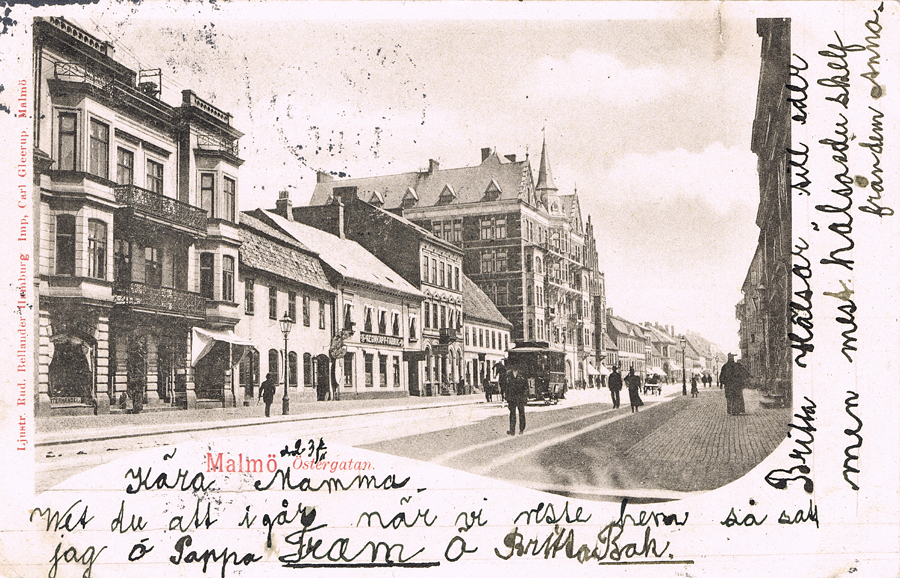 Ljustr. Rud. Bellander Hamburg Imp, Carl Gleerup. Malmö
Malmö
Östergatan.
Kära Mamma.
Wet du att i går när vi reste hem så satt
jag ö Pappa Fram ö Britta Bak.
Britta Hälsar till eder
men mest hälsas du skelf
från dem Anna